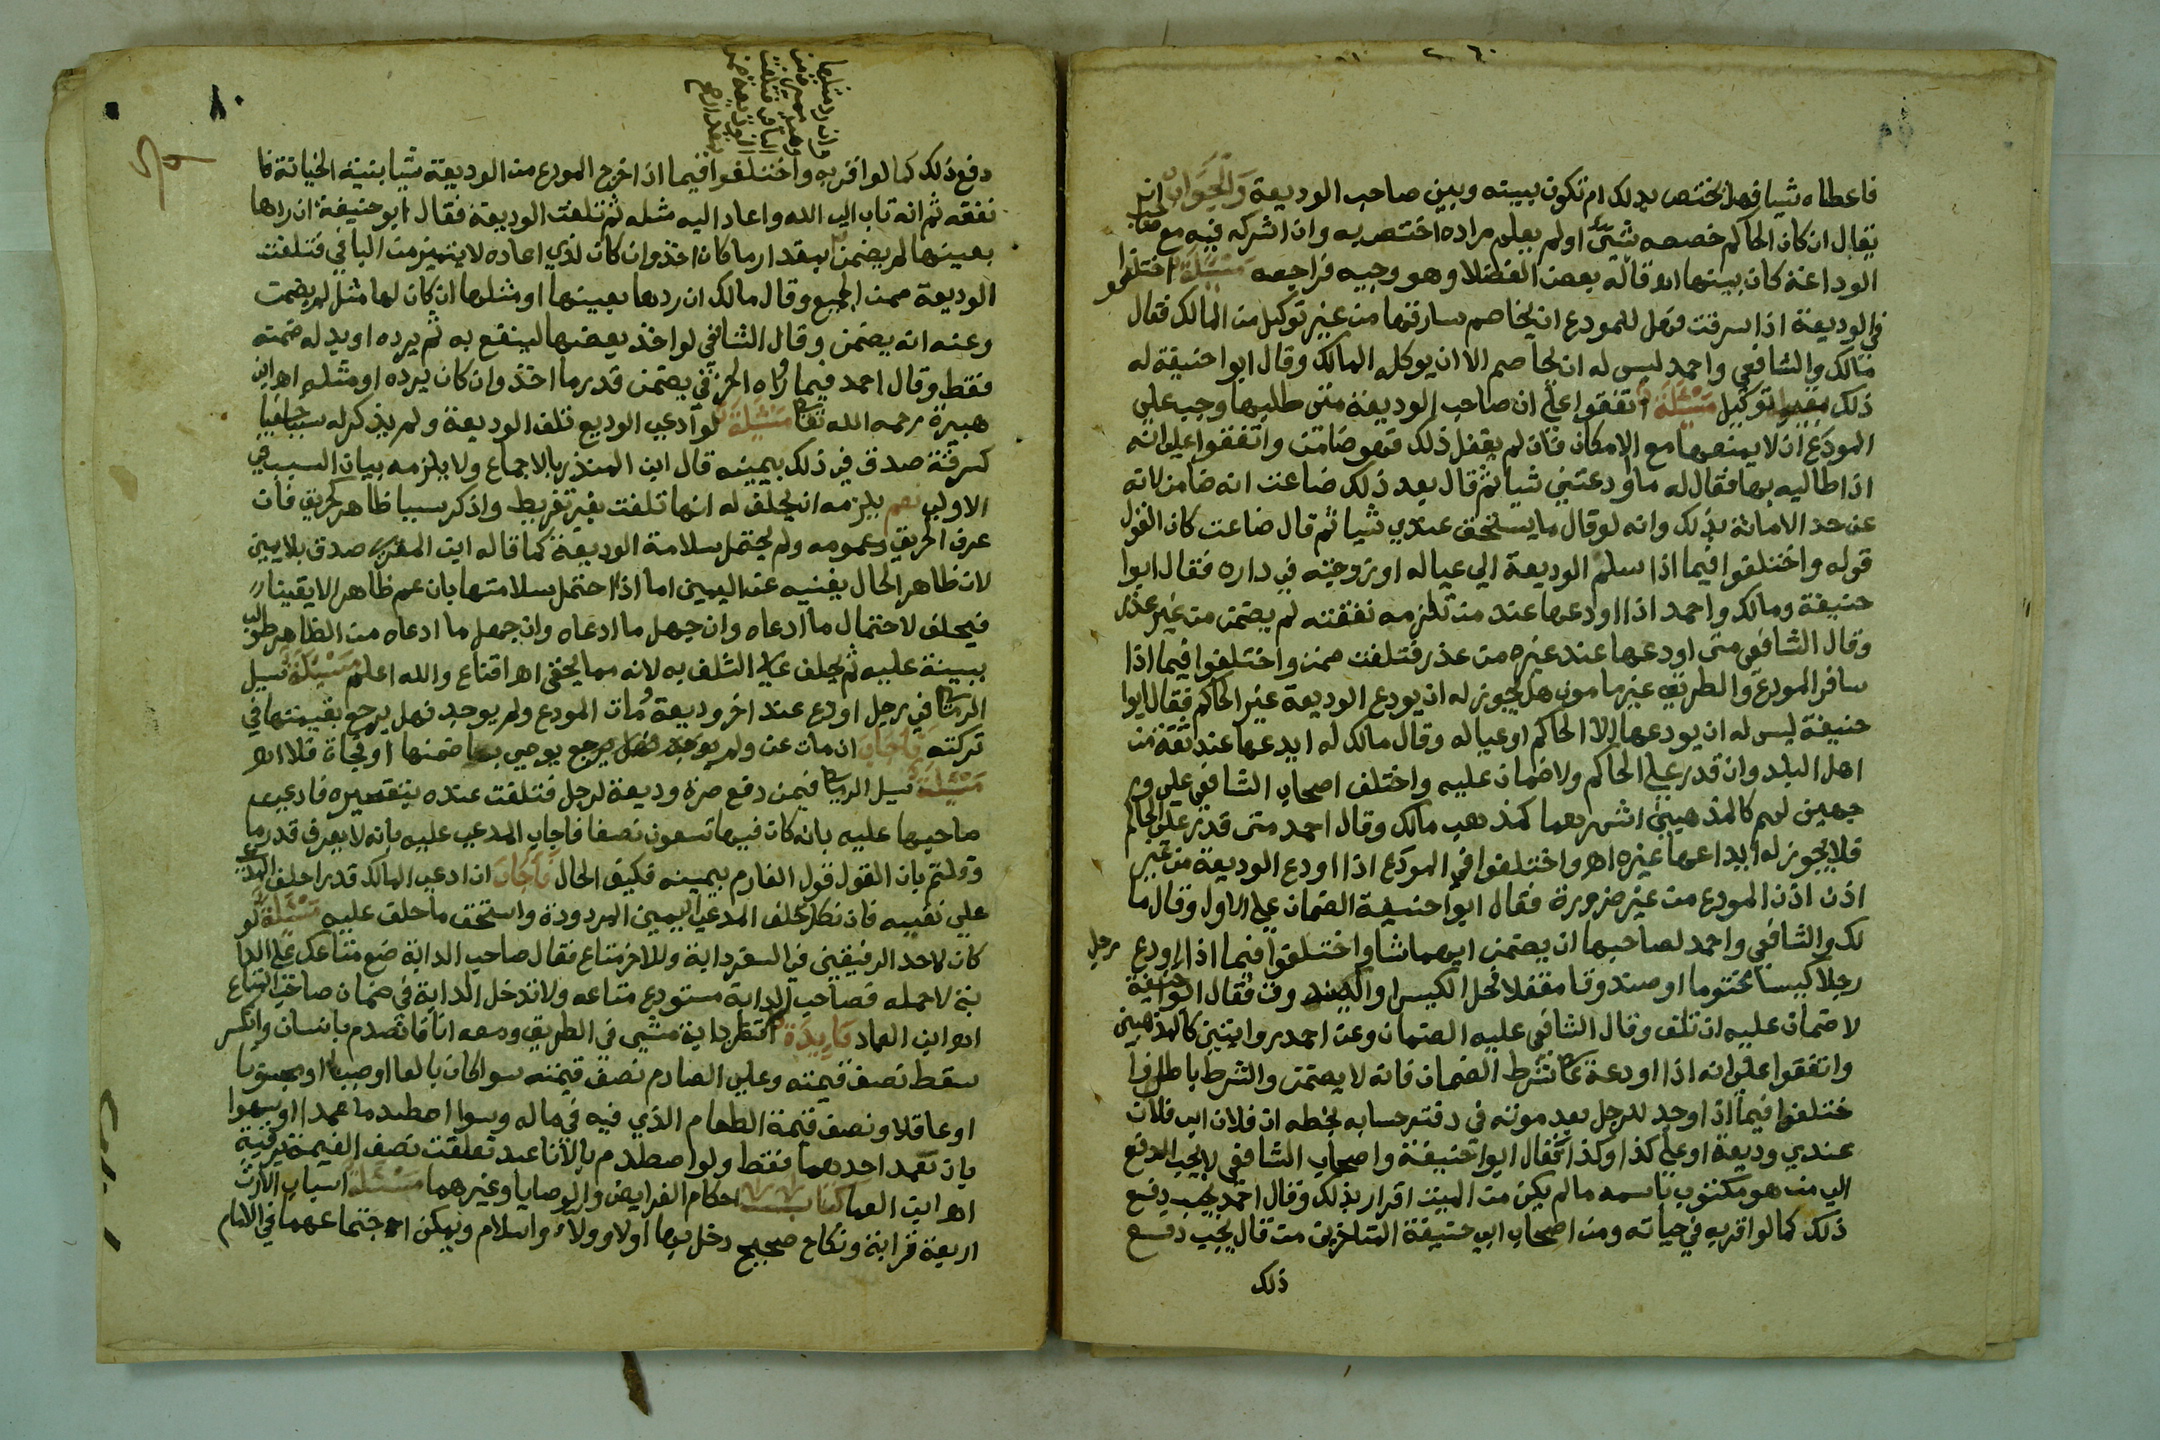 فاعطاه شيا فهل يختص بدلك ام تكون بينه وبين صاحب الوديعة والجواب ان
يقال ان كان الحاكم خصصه بشئ او لم يعلم مراده اختص به وان اشركه فيه مع صاحب
الوداعة كان بينهما اه قاله بعض الفضلا وهو وجيه فراجعه مسئلة اختلفوا
في الوديعة اذا سرقت فهل للمودع ان يخاصم سارقها من غير توكيل من المالك فقال
مالك والشافعي واحمد ليس له ان يخاصم الا ان يوكله المالك وقال ابوا حنيفة له
ذلك بغير توكيل مسئلة اتفقوا على ان صاحب الوديعة متى طلبها وجب علي
المودع ان لا يمنعها مع الامكان فان لم يفعل ذلك فهو ضامن واتفقوا علي انه
اذا طالبه بها فقال له ما اودعتني شيا ثم قال بعد ذلك ضاعت انه ضامن لانه
عن حد الامانة بذلك وانه لو قال ما يستحق عندي شيا ثم قال ضاعت كان القول
قوله واختلفوا فيما اذا سلم الوديعة الي عياله او زوجته في داره فقال ابوا
حنيفة ومالك واحمد اذا اودعها عند من تلزمه نفقته لم يضمن من غير عذر
وقال الشافعي متى اودعها عند غيره من عذر فتلفت ضمن واختلفوا فيما اذا
سافر المودع والطريق غير مامون هل يجوز له ان يودع الوديعة غير الحاكم فقال ابوا
حنيفة ليس له ان يودعها الا الحاكم او عياله وقال مالك له ايدعها عند ثقة من
اهل البلد وان قدر على الحاكم ولا ضمان عليه واختلف اصحاب الشافعي على و
جهين لهم كالمذهبين اشهرهما كمذهب مالك وقال احمد متى قدر على الحاكم
فلا يجوز له ايداعها غيره اه واختلفوا في المودع اذا اودع الوديعة من غير
اذن المودع من غير ضرورة فقال ابوا حنيفة الضمان على الاول وقال ما
لك والشافعي واحمد لصاحبها ان يضمن ايهما شا واختلفوا فيما اذا اودع رجل
رجلا كيسا مختوما او صندوقا مقفلا فحل الكيس او الصندوق فقال ابوا حنيفة
لا ضمان عليه ان تلف وقال الشافعي عليه الضمان وعن احمد روايتين كالمذهبين
واتفقوا على انه اذا اودعه على شرط الضمان فانه لا يضمن والشرط باطل وا
ختلفوا فيما اذا وجد للرجل بعد موته في دفتر حسابه بخطه ان فلان ابن فلان
عندي وديعة او علي كذا وكذا فقال ابوا حنيفة واصحاب الشافعي لا يجب الدفع
الي من هو مكتوب باسمه ما لم يكن من الميت اقرار بذلك وقال احمد يجب دفع
ذلك كما لو اقر به في حياته ومن اصحاب ابي حنيفة المتاخرين من قال يجب دفع
ذلك
٨٠
دفع ذلك كما لو اقر به واختلفوا فيما اذا اخرج المودع من الوديعة شيا بنية الخيانة فا
نفقه ثم انه تاب الي الله واعاد اليه مثله ثم تلفت الوديعة فقال ابو حنيفة ان ردها
بعينها لم يضمن بمقدار ما كان اخذ وان كان لذي اعاده لا يتميز من الباقي فتلفت
الوديعة ضمن الجميع وقال مالك ان ردها بعينها او مثلها ان كان لها مثل لم يضمن
وعنه انه يضمن وقال الشافعي لو اخذ بعضها لينفع به ثم يرده او بدله ضمنه
فقط وقال احمد فيما رواه الخرقي يضمن قدر ما اخذ وان كان يرده او مثله اه ابن
هبيرة رحمه الله تعا مسئلة لو ادعى الوديع تلف الوديعة ولم يذكر له سببا خفيا
كسرقة صدق في ذلك بيمينه قال ابن المنذر بالاجماع ولا يلزمه بيان السبب في
الاولى نعم يلزمه ان يحلف له انها تلفت بغير تفريط واذ كر سببا ظاهر كحريق فان
عرف الحريق وعمومه ولم يحتمل سلامة الوديعة كما قاله ابن المقري صدق بلا يمين
لان ظاهر الحال يغنيه عن اليمين اما اذا احتمل سلامتها بان عم ظاهر الا يقينا
فيحلف لاحتمال ما ادعاه وان جهل ما ادعاه وان جهل ما ادعاه من الظاهر طولب
ببينة عليه ثم يحلف على التلف به لانه مما يخفى اه اقناع والله اعلم مسئلة سيل
الرملي في رجل اودع عند اخر وديعة ومات المودع ولم يوجد فهل يرجع بقيمتها في
تركته فاجاب ان مات عن ولم يوص بها ضمنها او فجاة فلا اه
مسئلة سيل الرملي فيمن دفع صرة وديعة لرجل فتلفت عنده بتقصيره فادعى
صاحبها عليه بانه كان فيها تسعون نصفا فاجاب المدعي عليه بانه لا يعرف قدر ما
وقلتم بان القول قول الغارم بيمينه فكيف الحال فاجاب ان ادعى المالك قدرا حلف المدعي
علي نفيه فان نكل حلف المدعي اليمين المردودة واستحق ما حلف عليه مسئلة لو
كان لاحد الرفيقين في السفر دابة وللاخر متاع فقال صاحب الدابة ضع متاعك على الدا
بة لاحمله فصاحب الدابة مستودع متاعه ولا تدخل الدابة في ضمان صاحب المتاع
اه ابن العماد فايدة مشي في الطريق ومعه انا فاتصدم بانسان وانكسر
سقط نصف قيمته وعلي الصادم نصف قيمته سوا كان بالغا او صبيا او مجنونا
او عاقلا ونصف قيمة الطعام الذي فيه في ماله وسوا اصطدما عمدا او سهوا
بان تعمد احدهما فقط ولو اصطدم بالانا عبد تعلقت نصف القيمة برقبته
اه ابن العما كتاب احكام الفرايض والوصايا وغيرهما مسئلة اسباب الارث
اربعة قرابة ونكاح صحيح دخل بها اولا وولاء واسلام ويمكن اجتماعهما في الامام